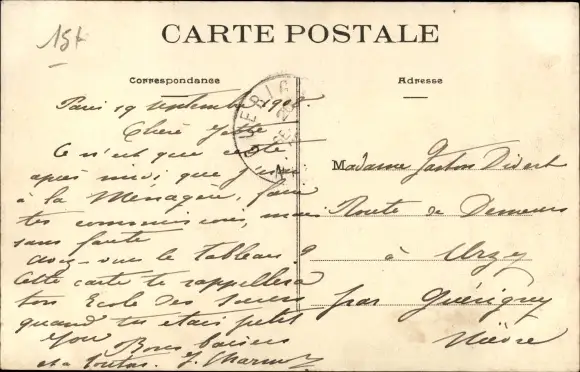 15t
CARTE POSTALE
Correspondance
Adresse
GUERIG
Paris 19 septembre 1908.
Chère
Ce n'est que cette
après midi que j'irai
à la Ménagère, faire
tes commissions, mais
sans faute
avez-vous le tableau ?
Cette carte te rappellera
ton Ecole des Soeurs
quand tu étais petit
Bons baisers
et à toutes. J.
Madame Gaston Divert
Route de Demeurs
à Urzy
par Guérigny
Nièvre